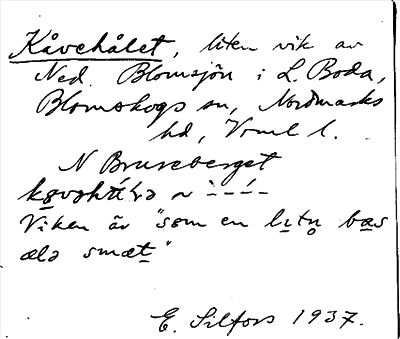 Kåvehålet, liten vik av
Ned. Blomsjön i L. Boda,
Blomskogs sn, Nordmarks
hd, Vrml l.
N Bruseberget
Viken är "som en litn bas
ælə smæt"
E. Silfors 1937.